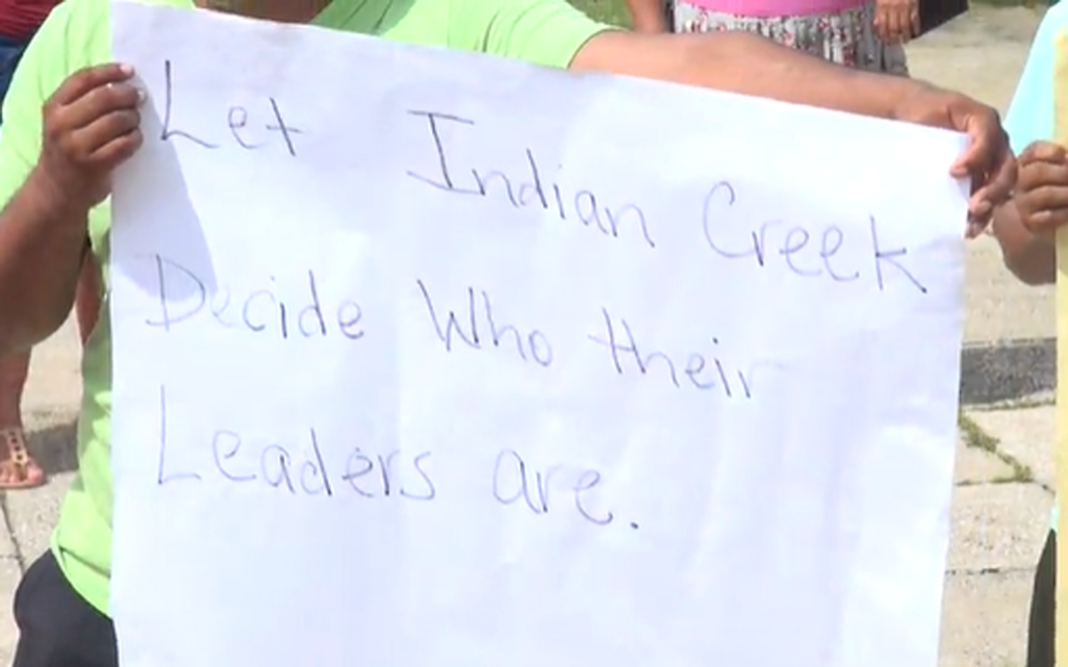 Let Indian Creek
Decide Who their
Leaders are.